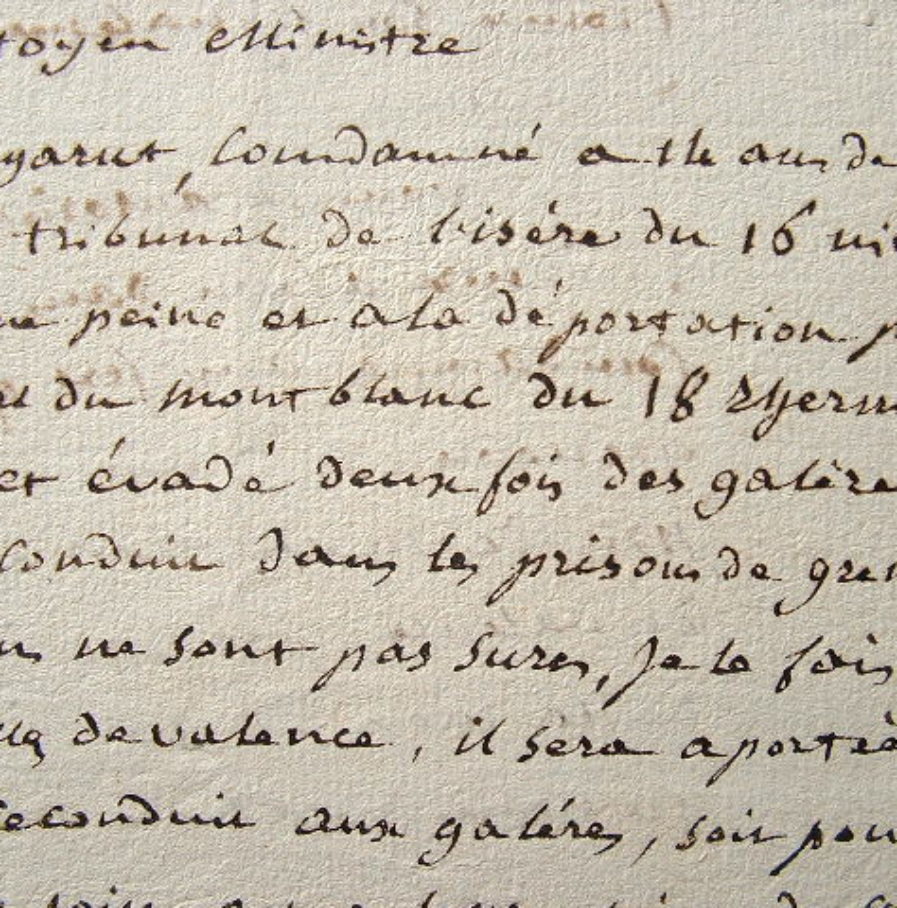 toyen Ministre
garut, Condamné a the ans de
tribunal de l'isére du 16 ni
peine et a la déportation p
du montblanc du 18
et évadé deux fois des galére
conduit dans les prisons de gren
ne sont pas sures, Je le fais
de valence, il sera aportée
reconduit aux galéres, soit pour